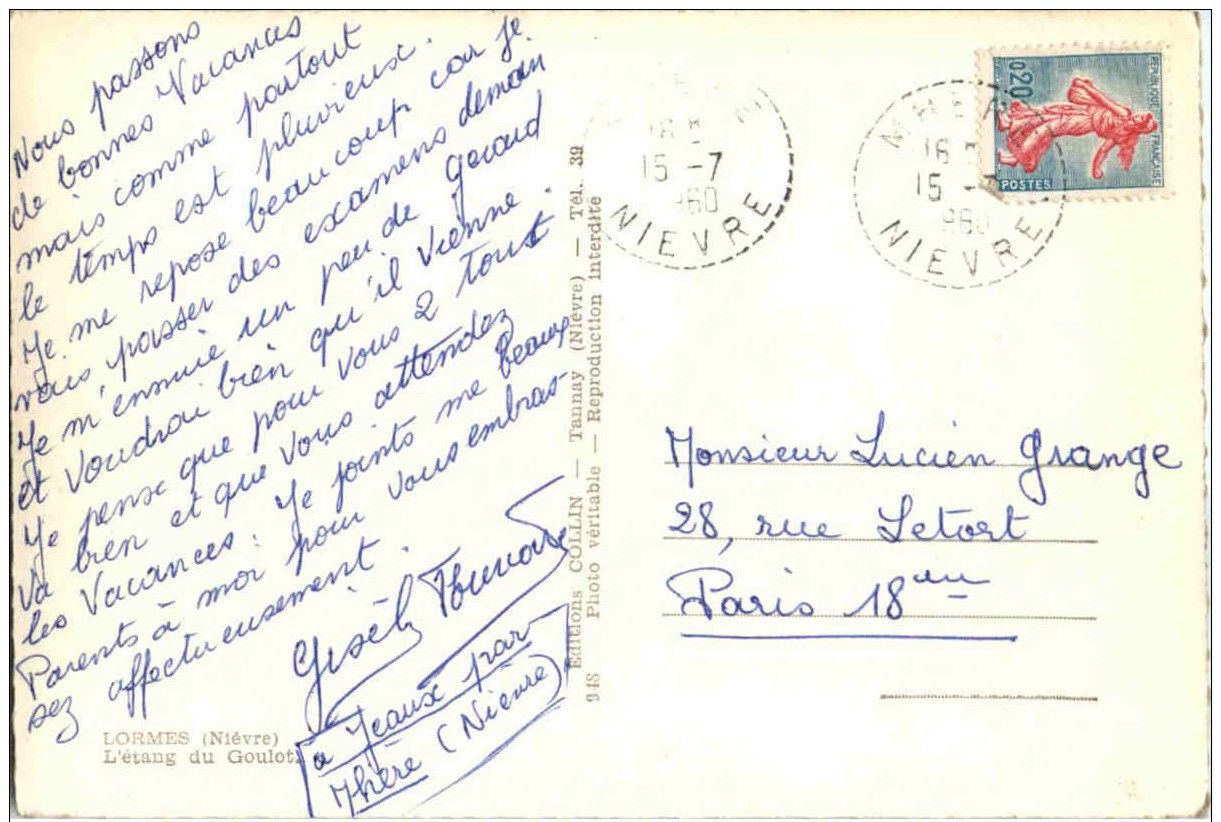 Nous passons
de bonnes Vacances
mais comme partout
le temps est pluvieux.
Je me repose beaucoup car je
vais passer des examens demain
Je m'ennuie un peu de Geraud
et Voudrai bien qu'il Vienne.
Je pense que pour Vous 2 tout
Va bien et que Vous attendez
les Vacances. Je joints me beaux
Parents à moi pour vous embras-
sez affectueusement.
Gisèle
à Jeaux par
Mhère (Nièvre)
LORMES (Nièvre)
L'étang du Goulot
948 Editions COLLIN — Tannay (Nièvre) — Tél. 39
Photo véritable — Reproduction interdite
16 H
15 -7
960
NIEVRE
MHERE
16 H
15 -7
960
NIEVRE
0,20
REPUBLIQUE FRANÇAISE
POSTES
Monsieur Lucien Grange
28, rue Letort
Paris 18em